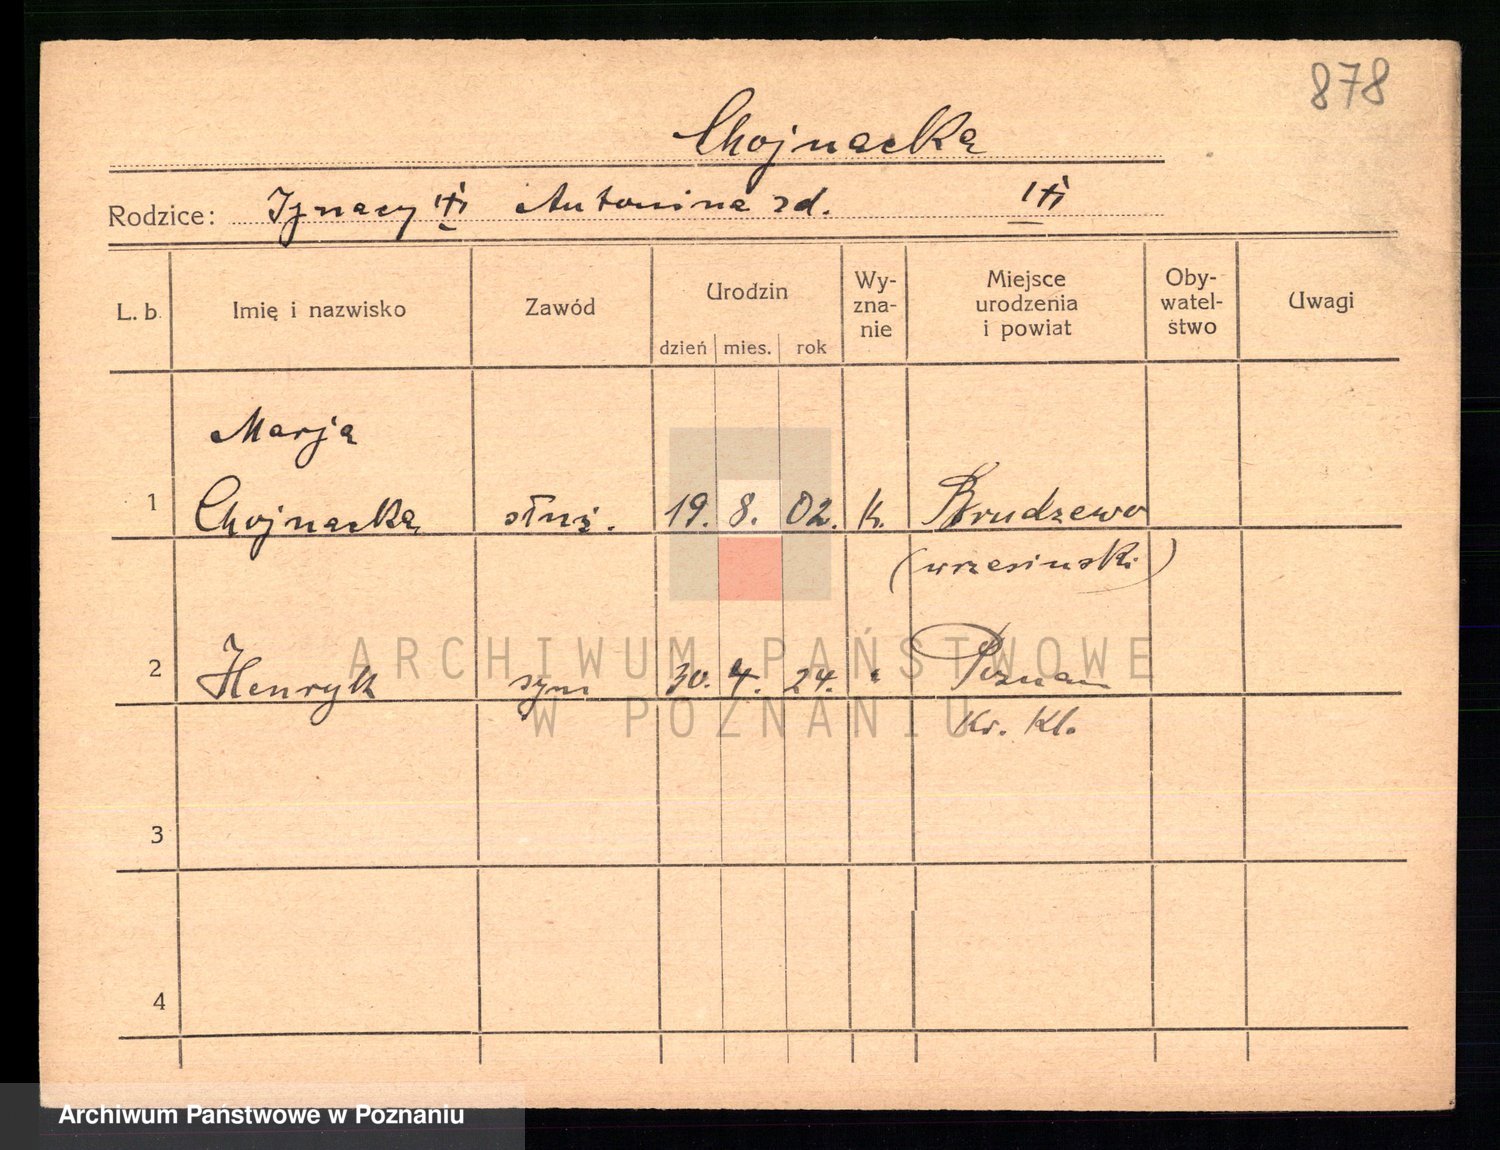 878
Chojnacka
Rodzice: Ignacy Antonina zd.
L. b. Imię i nazwisko Zawód Urodzin dzień mies. rok Wy-zna-nie Miejsce urodzenia i powiat Oby-watel-stwo Uwagi
Marja
1 Chojnacka służ. 19. 8. 02. k. Brudzewo
(wrzesiński)
2 Henryk syn 30. 4. 24. " Poznań
Kr. Kl.
3
4
ARCHIWUM PAŃSTWOWE
W POZNANIU
Archiwum Państwowe w Poznaniu